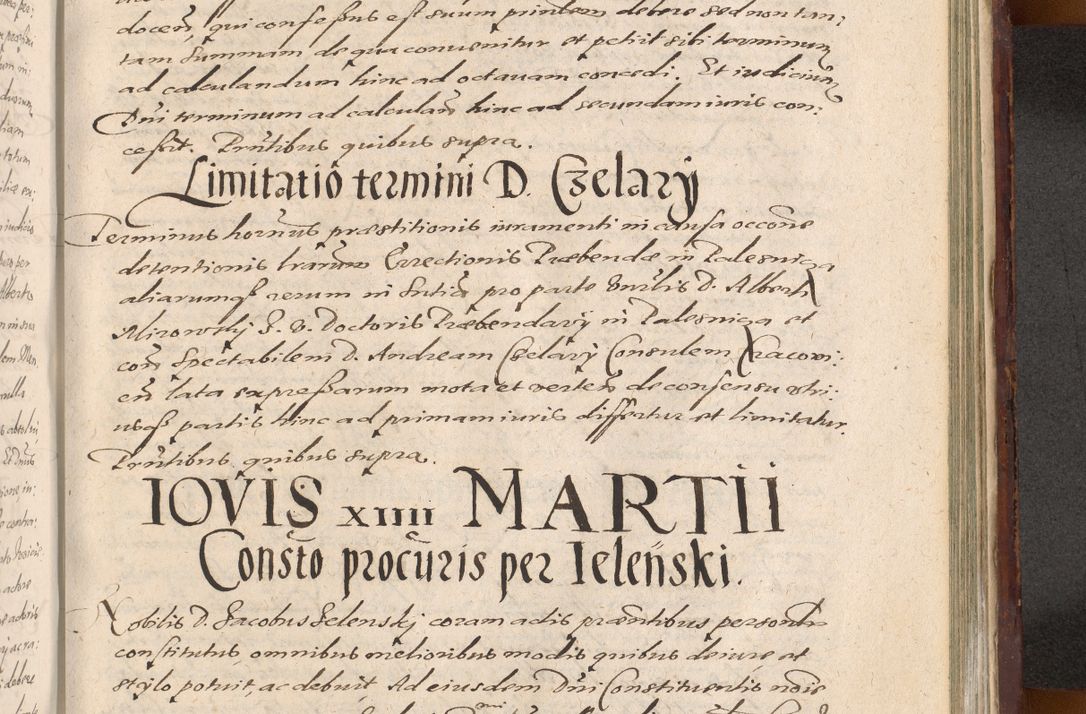 docen, qui confessus est suum printem debere sed non tan:
tam summam de qua convenitur et petiit sibi terminum
ad calculandum hinc ad octavam concedi. Et iudicium
Dni terminum ad calculan hinc ad secundam iuris con:
cessit. Prntibus quibus supra.
Limitatio termini D. Czelary
Terminus hornus præstitionis iuramenti in causa occone
detentionis lrarum Errectionis Præbendæ in Palesnica
aliarumqß rerum in sutia pro parte Vnrlis D. Alberti
Mirowskÿ J. V. Doctoris Præbendarÿ in Palesnica et
con Spectabilem D. Andream Czelarÿ Consulem Cracovi:
en lata expressarum mota et verten de consensu vtri:
usqß partis hinc ad primam iuris differtur et limitatur.
Prntibus quibus supra.
IOVIS xiiii MARTII
Consto procuris per Ieleński.
Nobilis D. Jacobus Jelenskÿ coram actis præntibus personlr
constitutus omnibus melioribus modis quibus de iure et
stylo potuit, ac debuit Ad eiusdem Dni Constituentis noie